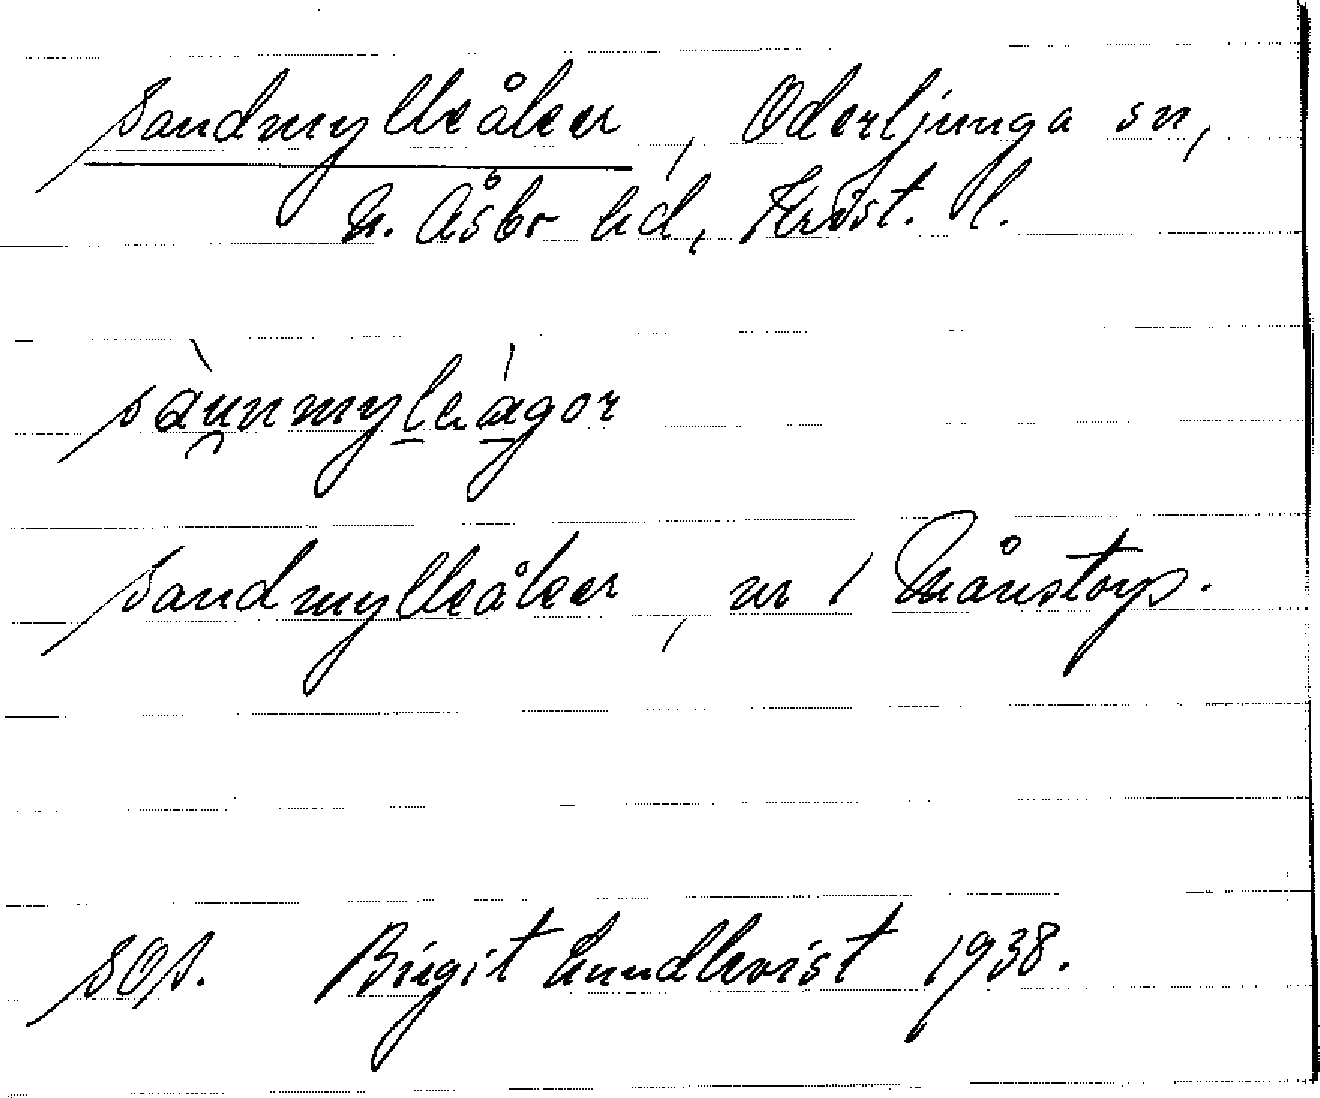 Sandmylleåker, Oderljunga sn,
N. Åsbo hd, Krist. l.
sànnmyleágor
Sandmylleåker, nr 1 Månstorp.
sOs. Birgit Lundkvist 1938.